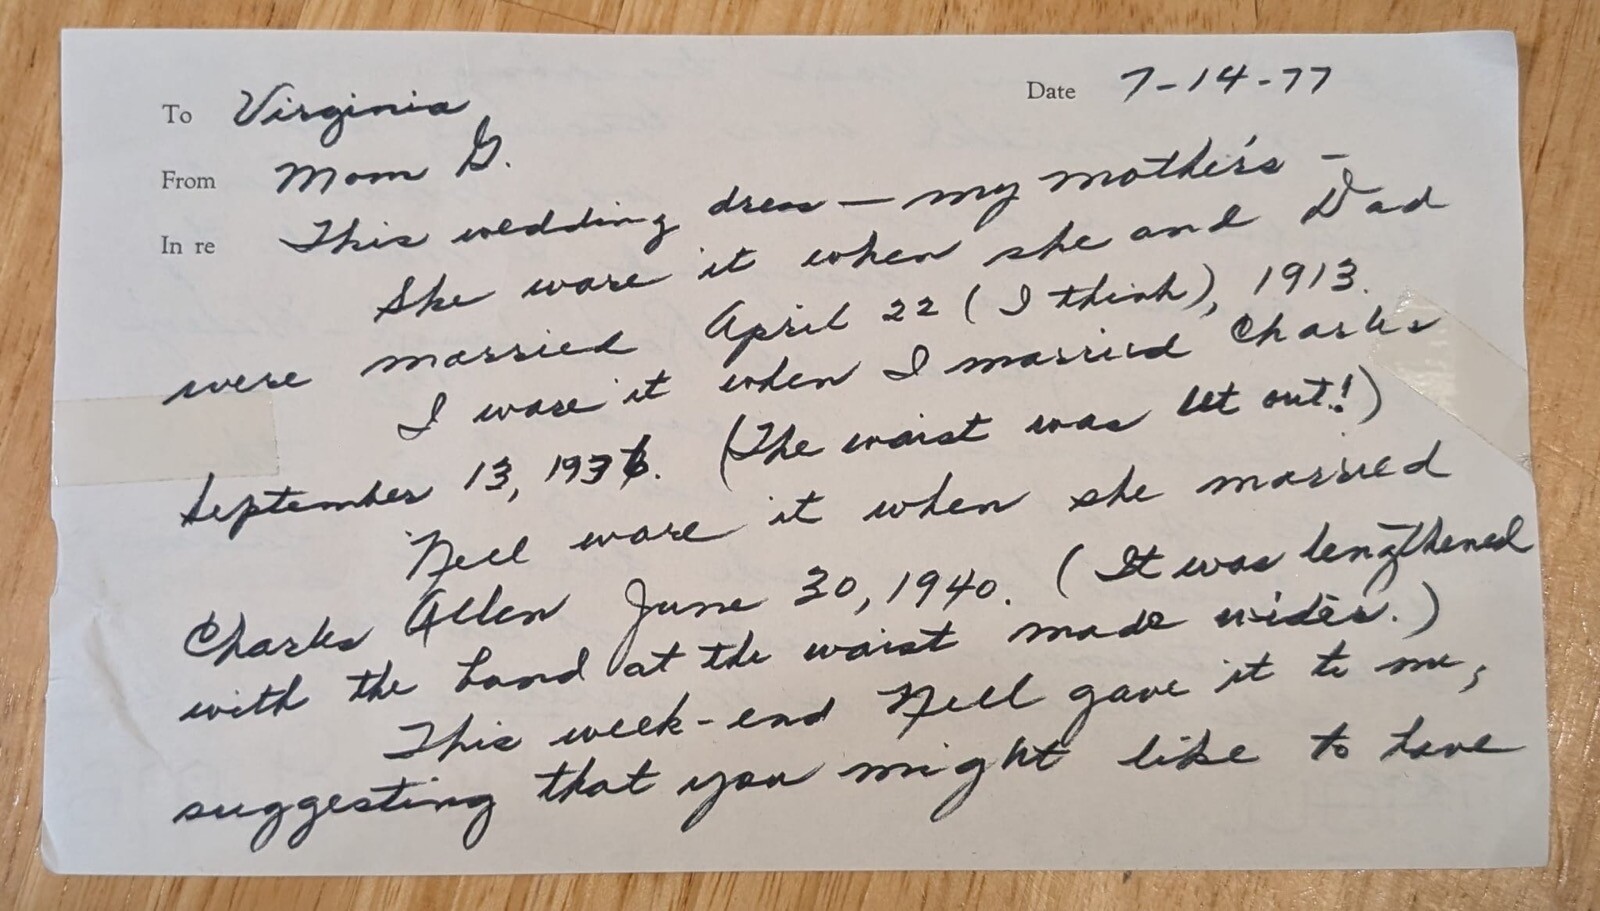 To Virginia Date 7-14-77
From Mom G.
In re This wedding dress — my mother's —
She wore it when she and Dad
were married April 22 (I think), 1913.
I wore it when I married Charles
September 13, 1936. (The waist was let out!)
Nell wore it when she married
Charles Allen June 30, 1940. (It was lengthened
with the band at the waist made wider.)
This week-end Nell gave it to me,
suggesting that you might like to have